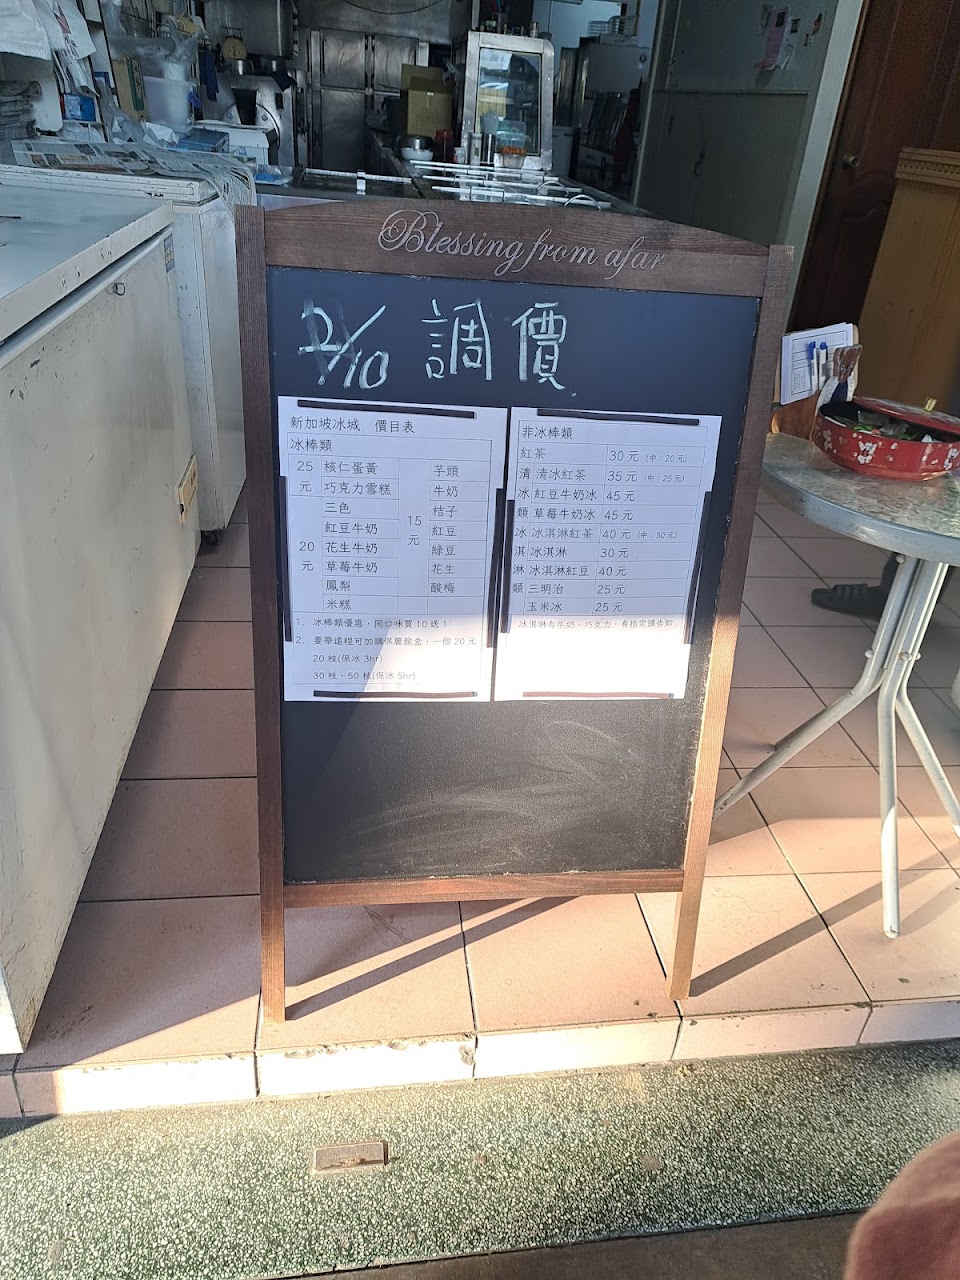 Blessing from afar
2/10 調價
新加坡冰城 價目表
冰棒類
25元 核仁蛋黃
巧克力雪糕
20元 三色
紅豆牛奶
花生牛奶
草莓牛奶
鳳梨
米糕
15元 芋頭
牛奶
桔子
紅豆
綠豆
花生
酸梅
1. 冰棒類優惠，同口味買10送1
2. 要帶遠程可加購保麗龍盒，一個20元
20枝(保冰3hr)
30枝、50枝(保冰5hr)
非冰棒類
清冰類
紅茶 30元 (中：20元)
清冰紅茶 35元 (中：25元)
紅豆牛奶冰 45元
草莓牛奶冰 45元
冰淇淋類
冰淇淋紅茶 40元 (中：30元)
冰淇淋 30元
冰淇淋紅豆 40元
三明治 25元
玉米冰 25元
冰淇淋有牛奶、巧克力，有指定請告知